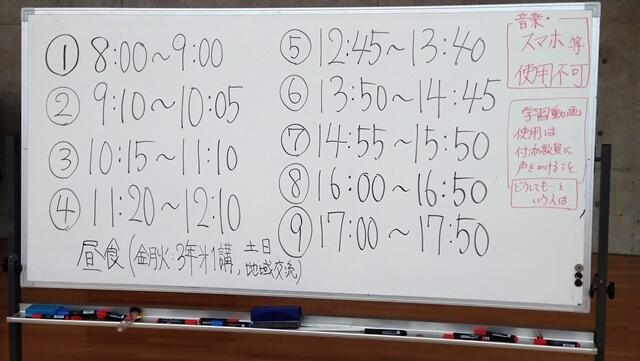 ① 8:00～9:00
② 9:10～10:05
③ 10:15～11:10
④ 11:20～12:10
昼食(金月火:3年
土日
地域交流)
⑤ 12:45～13:40
⑥ 13:50～14:45
⑦ 14:55～15:50
⑧ 16:00～16:50
⑨ 17:00～17:50
音楽・
スマホ等
使用不可
学習動画
使用は
付添教員に
声をかけること
どうしても―と
いう人は、